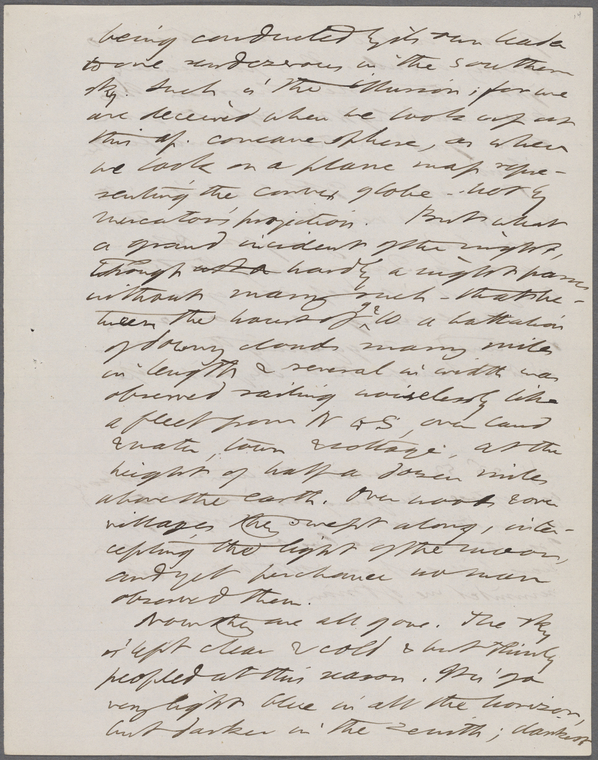 being conducted by its own leader
to one rendezvous in the southern
sky. Such is the illusion; for we
are deceived when we look up at
this ap. concave sphere, as when
we look on a plane map repre-
senting the convex globe - not by
mercator's projection. But what
a grand incident of the night,
though hardly a night passes
without many such - that be-
tween the hours of 9 & 10 a battalion
of downy clouds many miles
in length & several in width was
observed sailing noiselessly like
a fleet from N to S, over land
& water, town & cottage, at the
height of half a dozen miles
above the earth. Over woods & over
villages they swept along, inter-
cepting the light of the moon,
and yet perchance no man
observed them.
Now they are all gone. The sky
is left clear & cold & but thinly
peopled at this season. It is of a
very light blue in all the horizon,
but darker in the zenith; darkest